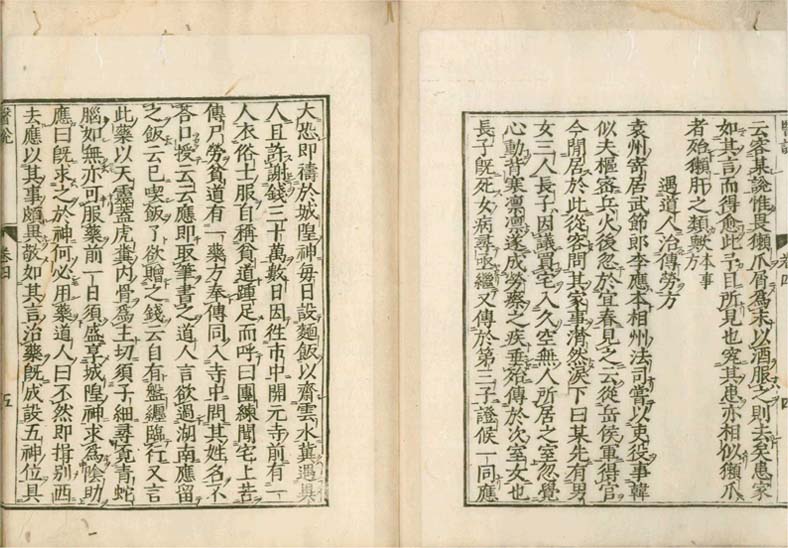 醫說 卷四 四
云客某說惟畏獺爪屑爲末以酒服之則去矣患家
如其言而得愈此予目所見也究其患亦相似獺爪
者殆獺肝之類歟本事
遇道人治傳勞方
袁州寄居武節郎李應本相州法司嘗以吏役事韓
似夫樞密兵火後忽於宜春見之云從岳侯軍得官
今閒居於此從容問其家事潸然淚下曰某先有男
女三人長子因議買宅入久空無人所居之室忽覺
心動背寒凛凛遂成勞瘵之疾垂殆傳於次室女也
長子旣死女病尋亟繼又傳於第三子證候一同應
大恐即禱於城隍神每日設麵飯以齋雲水冀遇異
人且許謝錢三十萬數日因徃市中開元寺前有一
人衣俗士服自稱貧道踵足而呼曰團練聞宅上苦
傳尸勞貧道有一藥方奉傳同入寺中問其姓名不
荅口授云云應即取筆書之道人言欲過湖南應留
之飯云已喫飯了欲贈之錢云自有盤纏臨行又言
此藥以天靈蓋虎糞内骨爲主切須子細尋覓青蛇
腦如無亦可服藥前一日須盛享城隍神求爲陰助
應曰旣求之於神何必用藥道人曰不然即揖別西
去應以其事頗異敬如其言治藥旣成設五神位具
醫說 卷四 五